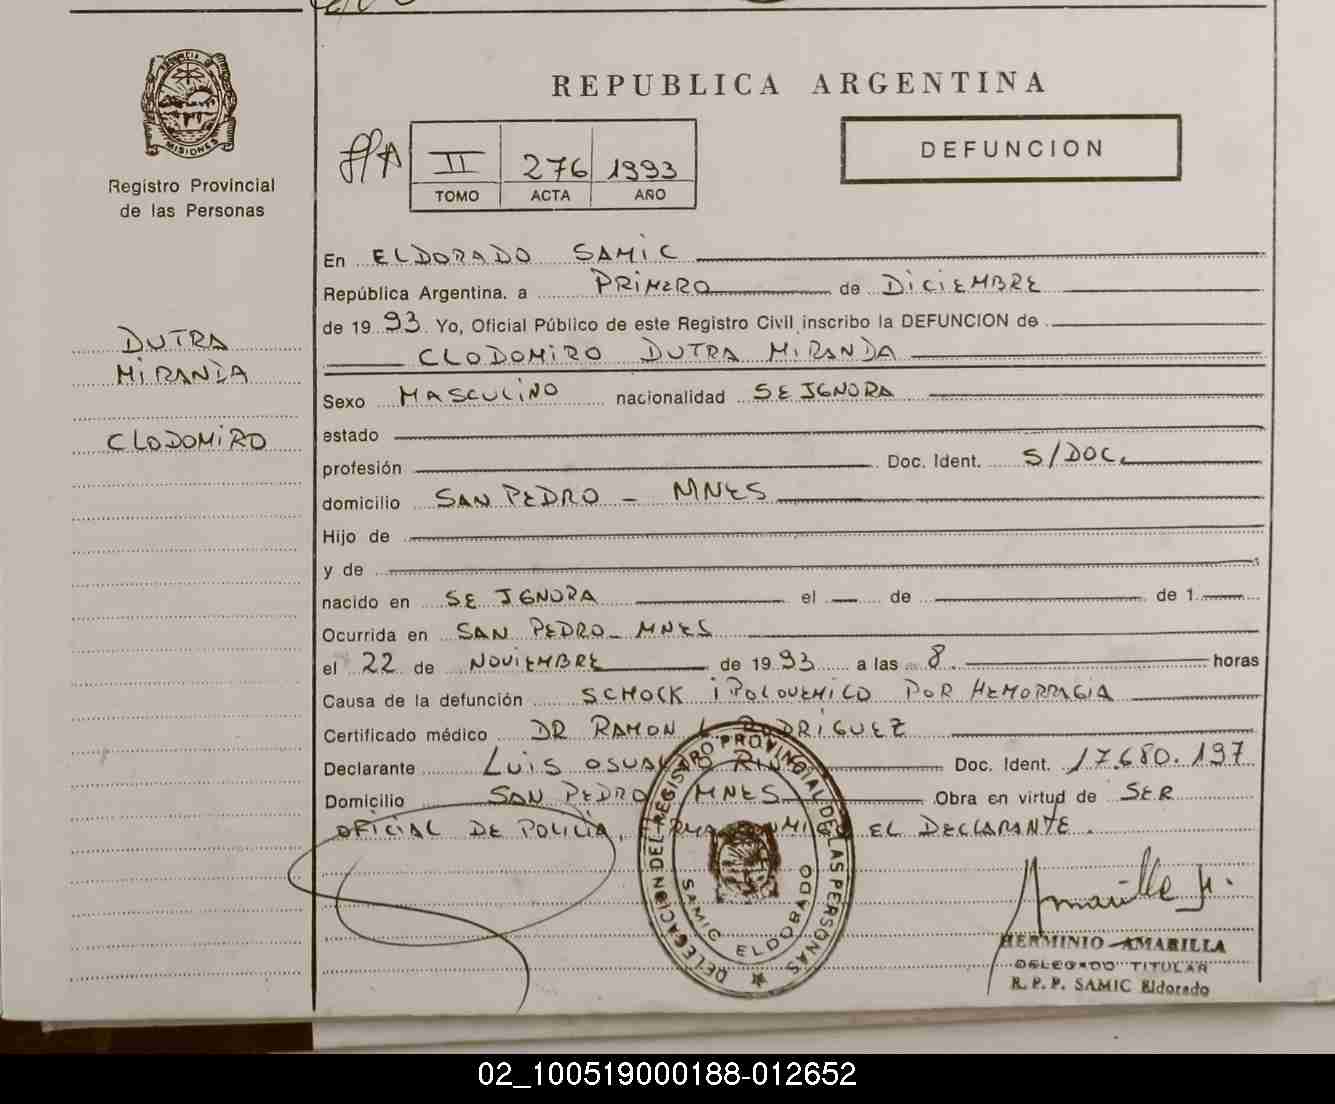 PROVINCIA DE
MISIONES
Registro Provincial
de las Personas
DUTRA
MIRANDA
CLODOMIRO
REPUBLICA ARGENTINA
II 276 1993
TOMO ACTA AÑO
DEFUNCION
En ELDORADO SAMIC
República Argentina, a PRIMERO de DICIEMBRE
de 1993 Yo, Oficial Público de este Registro Civil inscribo la DEFUNCION de
CLODOMIRO DUTRA MIRANDA
Sexo MASCULINO nacionalidad SE IGNORA
estado
profesión Doc. Ident. S/DOC.
domicilio SAN PEDRO - MNES
Hijo de
y de
nacido en SE IGNORA el de de 1
Ocurrida en SAN PEDRO - MNES
el 22 de NOVIEMBRE de 1993 a las 8 horas
Causa de la defunción SCHOCK IPOLOVEMICO POR HEMORRAGIA
Certificado médico DR RAMON L RODRÍGUEZ
Declarante LUIS OSVALDO Doc. Ident. 17.680.197
Domicilio SAN PEDRO MNES Obra en virtud de SER
OFICIAL DE POLICÍA, EL DECLARANTE.
DELEGACION DEL REGISTRO PROVINCIAL DE LAS PERSONAS
SAMIC ELDORADO
Amarilla H.
HERMINIO AMARILLA
DELEGADO TITULAR
R. P. P. SAMIC Eldorado
02_100519000188-012652